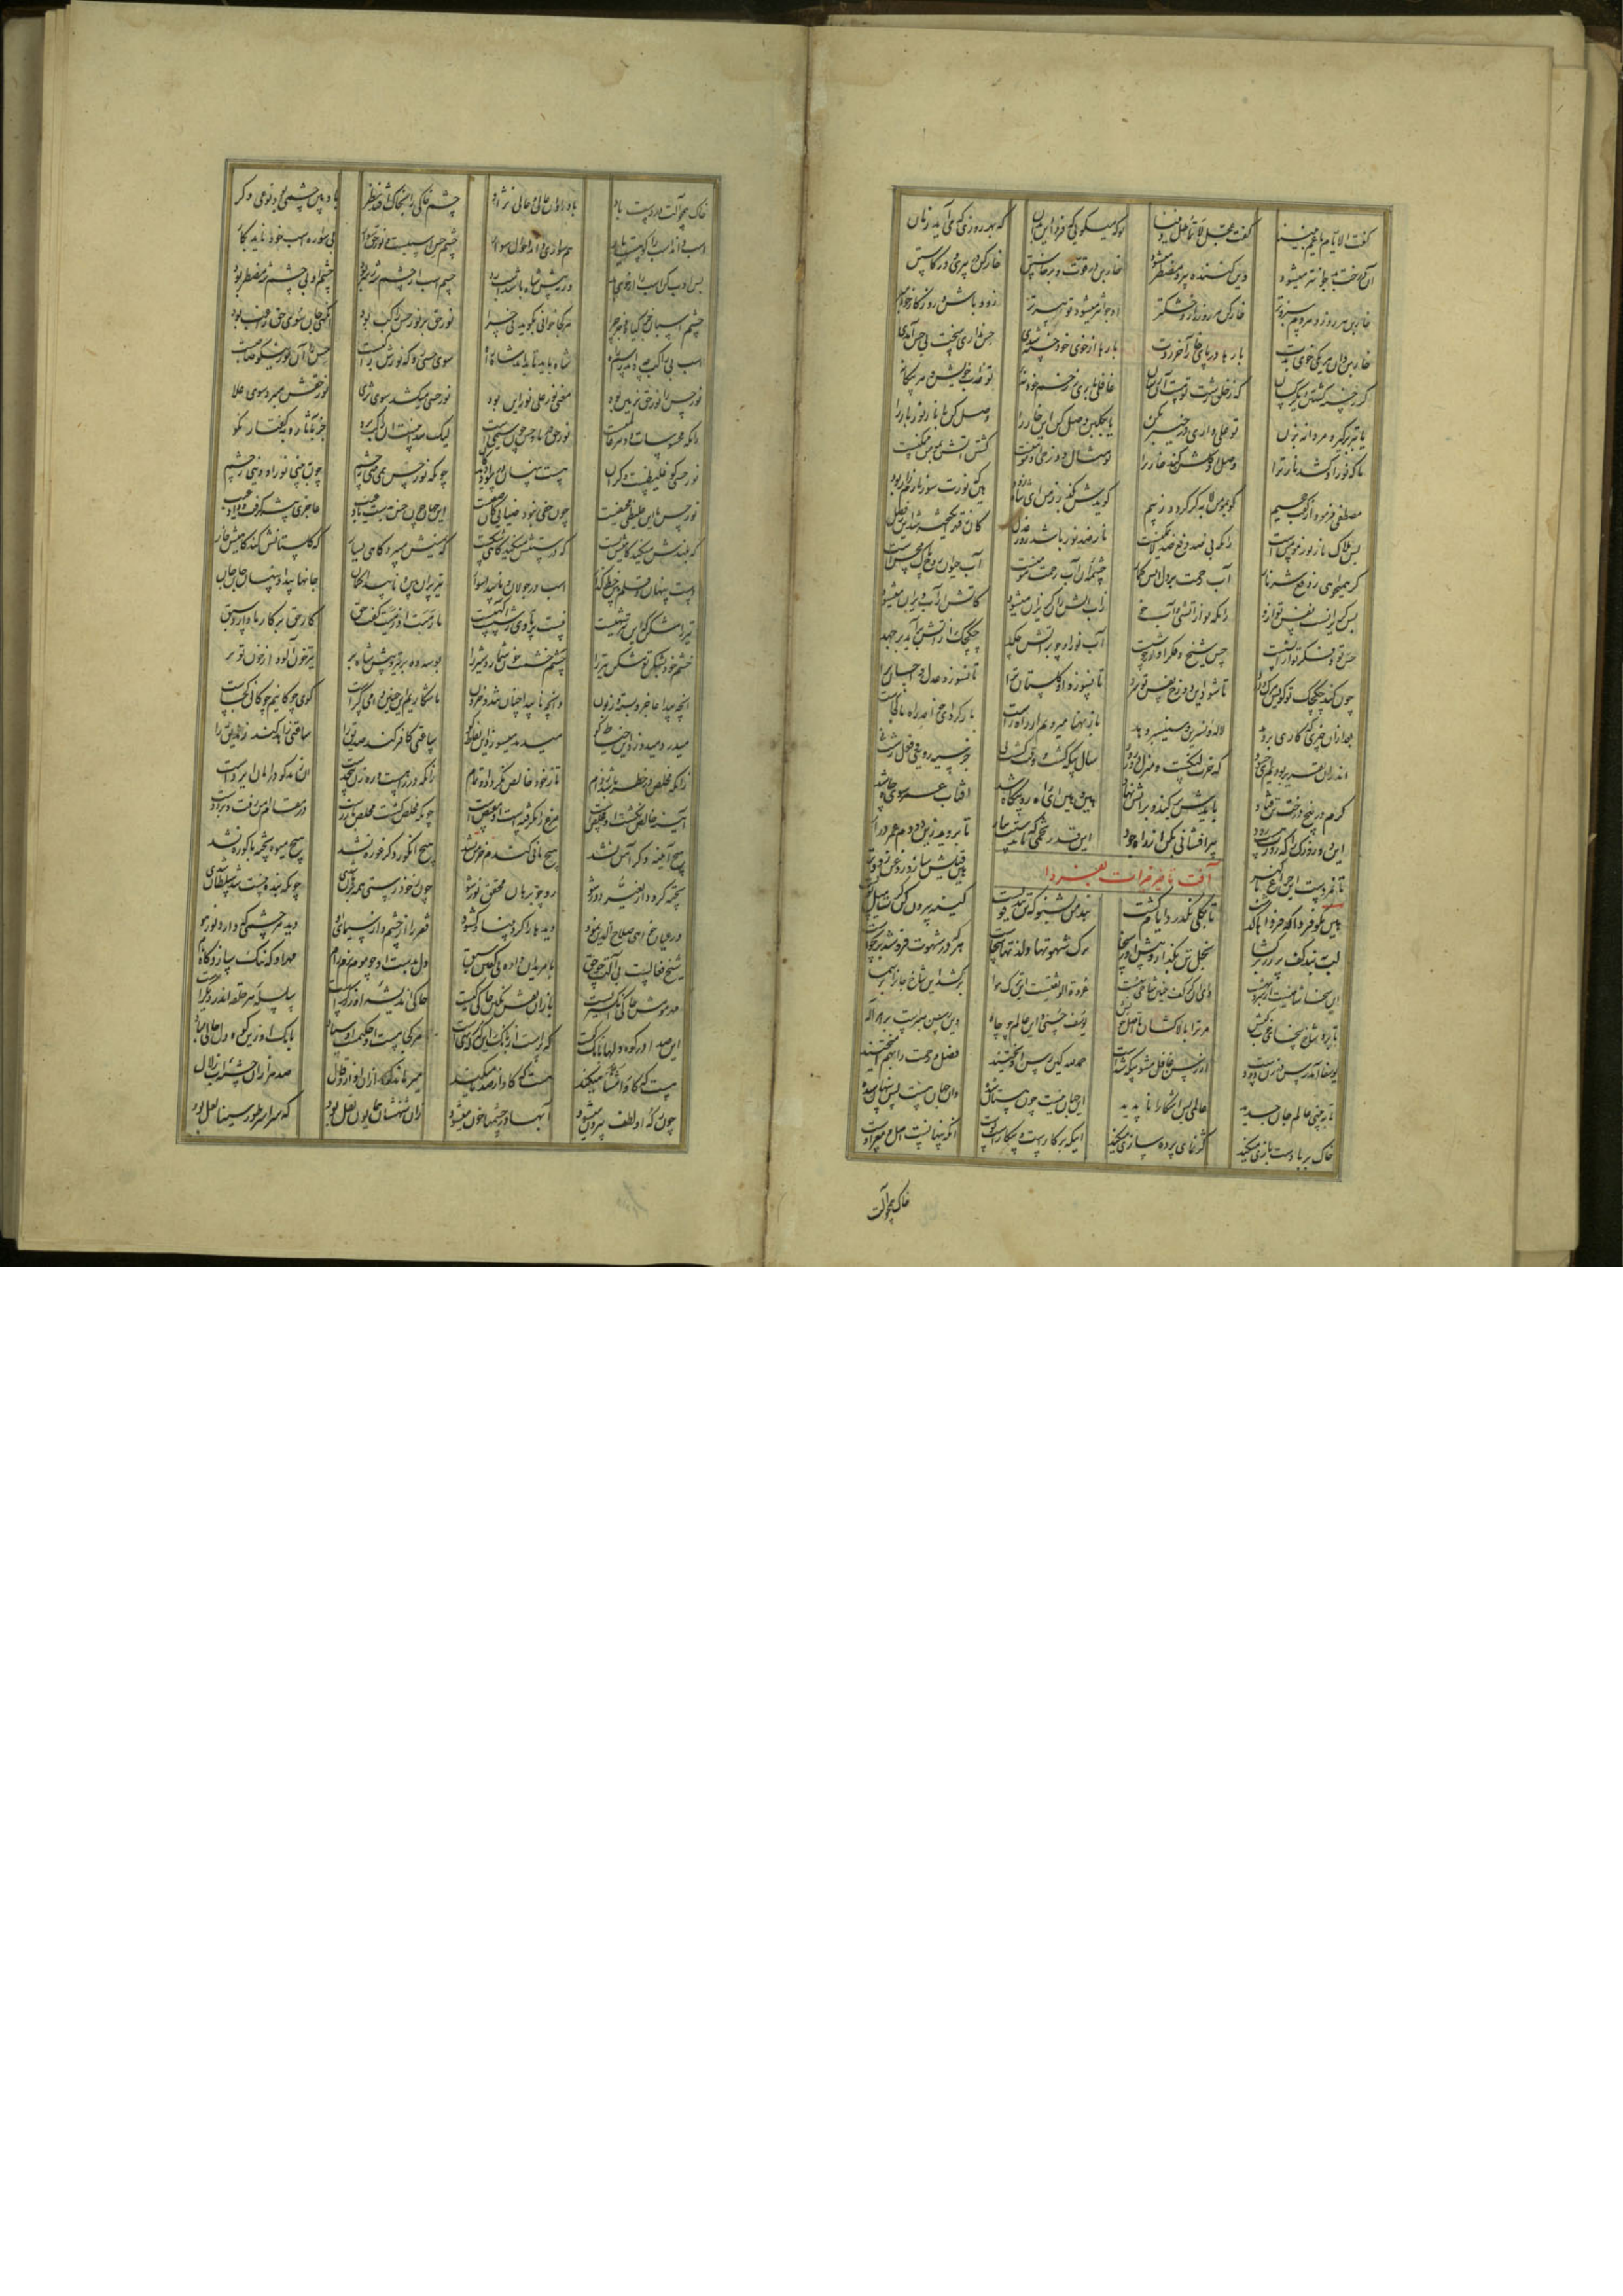 گفت الایام یا عم بیننا گفت عجل لا تماطل دیننا تو که میگویی که فردا این بدان که بهر روزی که می آید زمان
آن درخت بد جوانتر میشود وین کننده پیر و مضطر میشود خاربن در قوت و برخاستن خارکن در پیری و در کاستن
خاربن هر روز و هر دم سبز و تر خارکن هر روز زار و خشکتر او جوانتر میشود تو پیرتر زود باش و روزگار خود مبر
خاربن دان هر یکی خوی بدت بارها در پای خار آخر زدت بارها از خوی خود خسته شدی حس نداری سخت بی حس آمدی
گر ز خسته گشتن دیگر کسان که ز خلق زشت تو هست آن رسان غافلی باری ز زخم خود نه تو عذاب خویش و هر بیگانه
یا تبر برگیر و مردانه بزن تو علی وار این در خیبر بکن یا بگلبن وصل کن این خار را وصل کن با نار نور یار را
تا که نور او کشد نار ترا وصل او گلشن کند خار ترا تو مثال دوزخی و او مومنست کشتن آتش بمومن ممکنست
مصطفی فرمود از گفت جحیم کو بمومن لابه گر گردد ز بیم گویدش بگذر ز من ای شاه زود هین که نورت سوز نارم را ربود
پس هلاک نار نور مومنست زانکه بی ضد دفع ضد لا یمکنست نار ضد نور باشد روز عدل کان ز قهر انگیخته شد این ز فضل
گر همیخواهی تو دفع شر نار آب رحمت بر دل آتش گمار چشمه آن آب رحمت مومنست آب حیوان روح پاک محسنست
پس گریزانست نفس تو ازو زانکه تو از آتشی او آب خو ز آب آتش زان گریزان میشود کاتشش از آب ویران میشود
حس و فکر تو همه از آتشست حس شیخ و فکر او نور خوشست آب نور او چو بر آتش چکد چکچک از آتش برآید برجهد
چون کند چکچک تو گویش مرگ و درد تا شود این دوزخ نفس تو سرد تا نسوزد او گلستان ترا تا نسوزد عدل و احسان ترا
بعد از آن چیزی که کاری بر دهد لاله و نسرین و سیسنبر دهد باز پهنا میرویم از راه راست باز گرد ای خواجه راه ما کجاست
اندر آن تقریر بودیم ای حسود که خرت لنگست و منزل دور زود سال بیگه گشت وقت کشت نی جز سیه رویی و فعل زشت نی
کرم در بیخ درخت تن فتاد بایدش برکند و بر آتش نهاد هین و هین ای راه رو بیگاه شد آفتاب عمر سوی چاه شد
این دو روزک را که زورت هست زود پر افشانی بکن از راه جود این قدر تخمی که ماندستت بباز تا بروید زین دو دم عمر دراز
تا نمردست این چراغ با گهر هین فتیلش ساز و روغن زودتر
آفت تاخیر خیرات بفردا
هین مگو فردا که فرداها گذشت تا بکلی نگذرد ایام کشت پند من بشنو که تن بند قویست کهنه بیرون کن گرت میل نویست
لب ببند و کف پر زر برگشا بخل تن بگذار و پیش آور سخا ترک شهوتها و لذتها سخاست هر که در شهوت فرو شد برنخاست
این سخا شاخیست از سرو بهشت وای او کز کف چنین شاخی بهشت عروة الوثقیست این ترک هوا برکشد این شاخ جان را بر سما
تا برد شاخ سخا ای خوب کیش مر ترا بالا کشان تا اصل خویش یوسف حسنی و این عالم چو چاه وین رسن صبرست بر امر اله
یوسفا آمد رسن در زن دو دست از رسن غافل مشو بیگه شدست حمد لله کین رسن آویختند فضل و رحمت را بهم آمیختند
تا ببینی عالم جان جدید عالمی بس آشکارا ناپدید این جهان نیست چون هستان شده وان جهان هست بس پنهان شده
خاک بر بادست بازی میکند کژنمایی پرده سازی میکند اینکه بر کارست بیکارست و پوست آنکه پنهانست اصل و مغز اوست
خاک همچو آلت
خاک همچو آلت در دست باد باد را دان عالی و عالی نژاد چشم خاکی را بخاک افتد نظر باد بین چشمی بود نوعی دگر
اسب داند اسب را کو هست یار هم سواری داند احوال سوار چشم حس اسپست و نور حق سوار بی سواره اسب خود ناید بکار
پس ادب کن اسب را از خوی بد ورنه پیش شاه باشد اسب رد چشم اسب از چشم شه رهبر بود چشم او بی چشم شه مضطر بود
چشم اسپان جز گیاه و جز چرا هر کجا خوانی بگوید نی چرا نور حق بر نور حس راکب شود آنگهی جان سوی حق راغب شود
اسب بی راکب چه داند رسم راه شاه باید تا بداند شاه راه سوی حسی رو که نورش راکبست حس را آن نور نیکو صاحبست
نور حس را نور حق تزیین بود معنی نور علی نور این بود نور حسی میکشد سوی ثری نور حقش میبرد سوی علا
زانکه محسوسات دونتر عالمیست نور حق دریا و حس چون شبنمیست لیک پیدا نیست آن راکب برو جز بآثار و بگفتار نکو
نور حسی کو غلیظست و گران هست پنهان در سواد دیدگان چونکه نور حس نمی بینی ز چشم چون ببینی نور آن دینی ز چشم
نور حس با این غلیظی مختفیست چون خفی نبود ضیایی کان صفیست این جهان چون خس بدست باد غیب عاجزی پیشه گرفت و داد غیب
که بلندش میکند گاهیش پست که درستش میکند گاهی شکست که یمینش میبرد گاهی یسار که گلستانش کند گاهیش خار
دست پنهان و قلم بین خط گذار اسب در جولان و ناپیدا سوار تیر پران بین و ناپیدا کمان جانها پیدا و پنهان جان جان
تیر را مشکن که این تیر شهیست نیست پرتاوی ز شصت آگهیست ما رمیت اذ رمیت گفت حق کار حق بر کارها دارد سبق
خشم خود بشکن تو مشکن تیر را چشم خشمت خون شمارد شیر را بوسه ده بر تیر و پیش شاه بر تیر خون آلود از خون تو تر
آنچه پیدا عاجز و بسته و زبون وآنچه ناپیدا چنان تند و حرون ما شکاریم این چنین دامی کراست گوی چوگانیم چوگانی کجاست
میدرد میدوزد این خیاط کو میدمد میسوزد این نفاط کو ساعتی کافر کند صدیق را ساعتی زاهد کند زندیق را
زانکه مخلص در خطر باشد ز دام تا ز خود خالص نگردد او تمام زانکه در راهست و رهزن بیحدست آن رهد کو در امان ایزدست
آینه خالص نگشت او مخلصست مرغ را نگرفته است او مقنصست چونکه مخلص گشت مخلص باز رست در مقام امن رفت و برد دست
هیچ آیینه دگر آهن نشد هیچ نانی گندم خرمن نشد هیچ انگوری دگر غوره نشد هیچ میوه پخته با کوره نشد
پخته گرد و از تغیر دور شو رو چو برهان محقق نور شو چون ز خود رستی همه برهان شدی چونکه بنده نیست شد سلطان شدی
ور عیان خواهی صلاح الدین نمود دیدها را کرد بینا و گشود فقر را از چشم و از سیمای او دید هر چشمی که دارد نور هو
شیخ فعالست بی آلت چو حق با مریدان داده بی گفتی سبق دل بدست او چو موم نرم رام مهر او گه ننگ سازد گاه نام
مهر مومش حاکی انگشتریست باز آن نقش نگین حاکی کیست حاکی اندیشه آن زرگرست سلسله هر حلقه اندر دیگرست
این صدا در کوه دلها بانگ کیست گه پرست از بانگ این که گه تهیست هر کجا هست او حکیمست اوستاد بانگ او زین کوه دل خالی مباد
هست که کآوا مثنا میکند هست که کآواز صدتا میکند میزهاند کوه از آن آواز و قال صد هزاران چشمه آب زلال
چون ز که آن لطف بیرون میشود آبها در چشمها خون میشود زان شهنشاه همایون نعل بود که سراسر طور سینا لعل بود